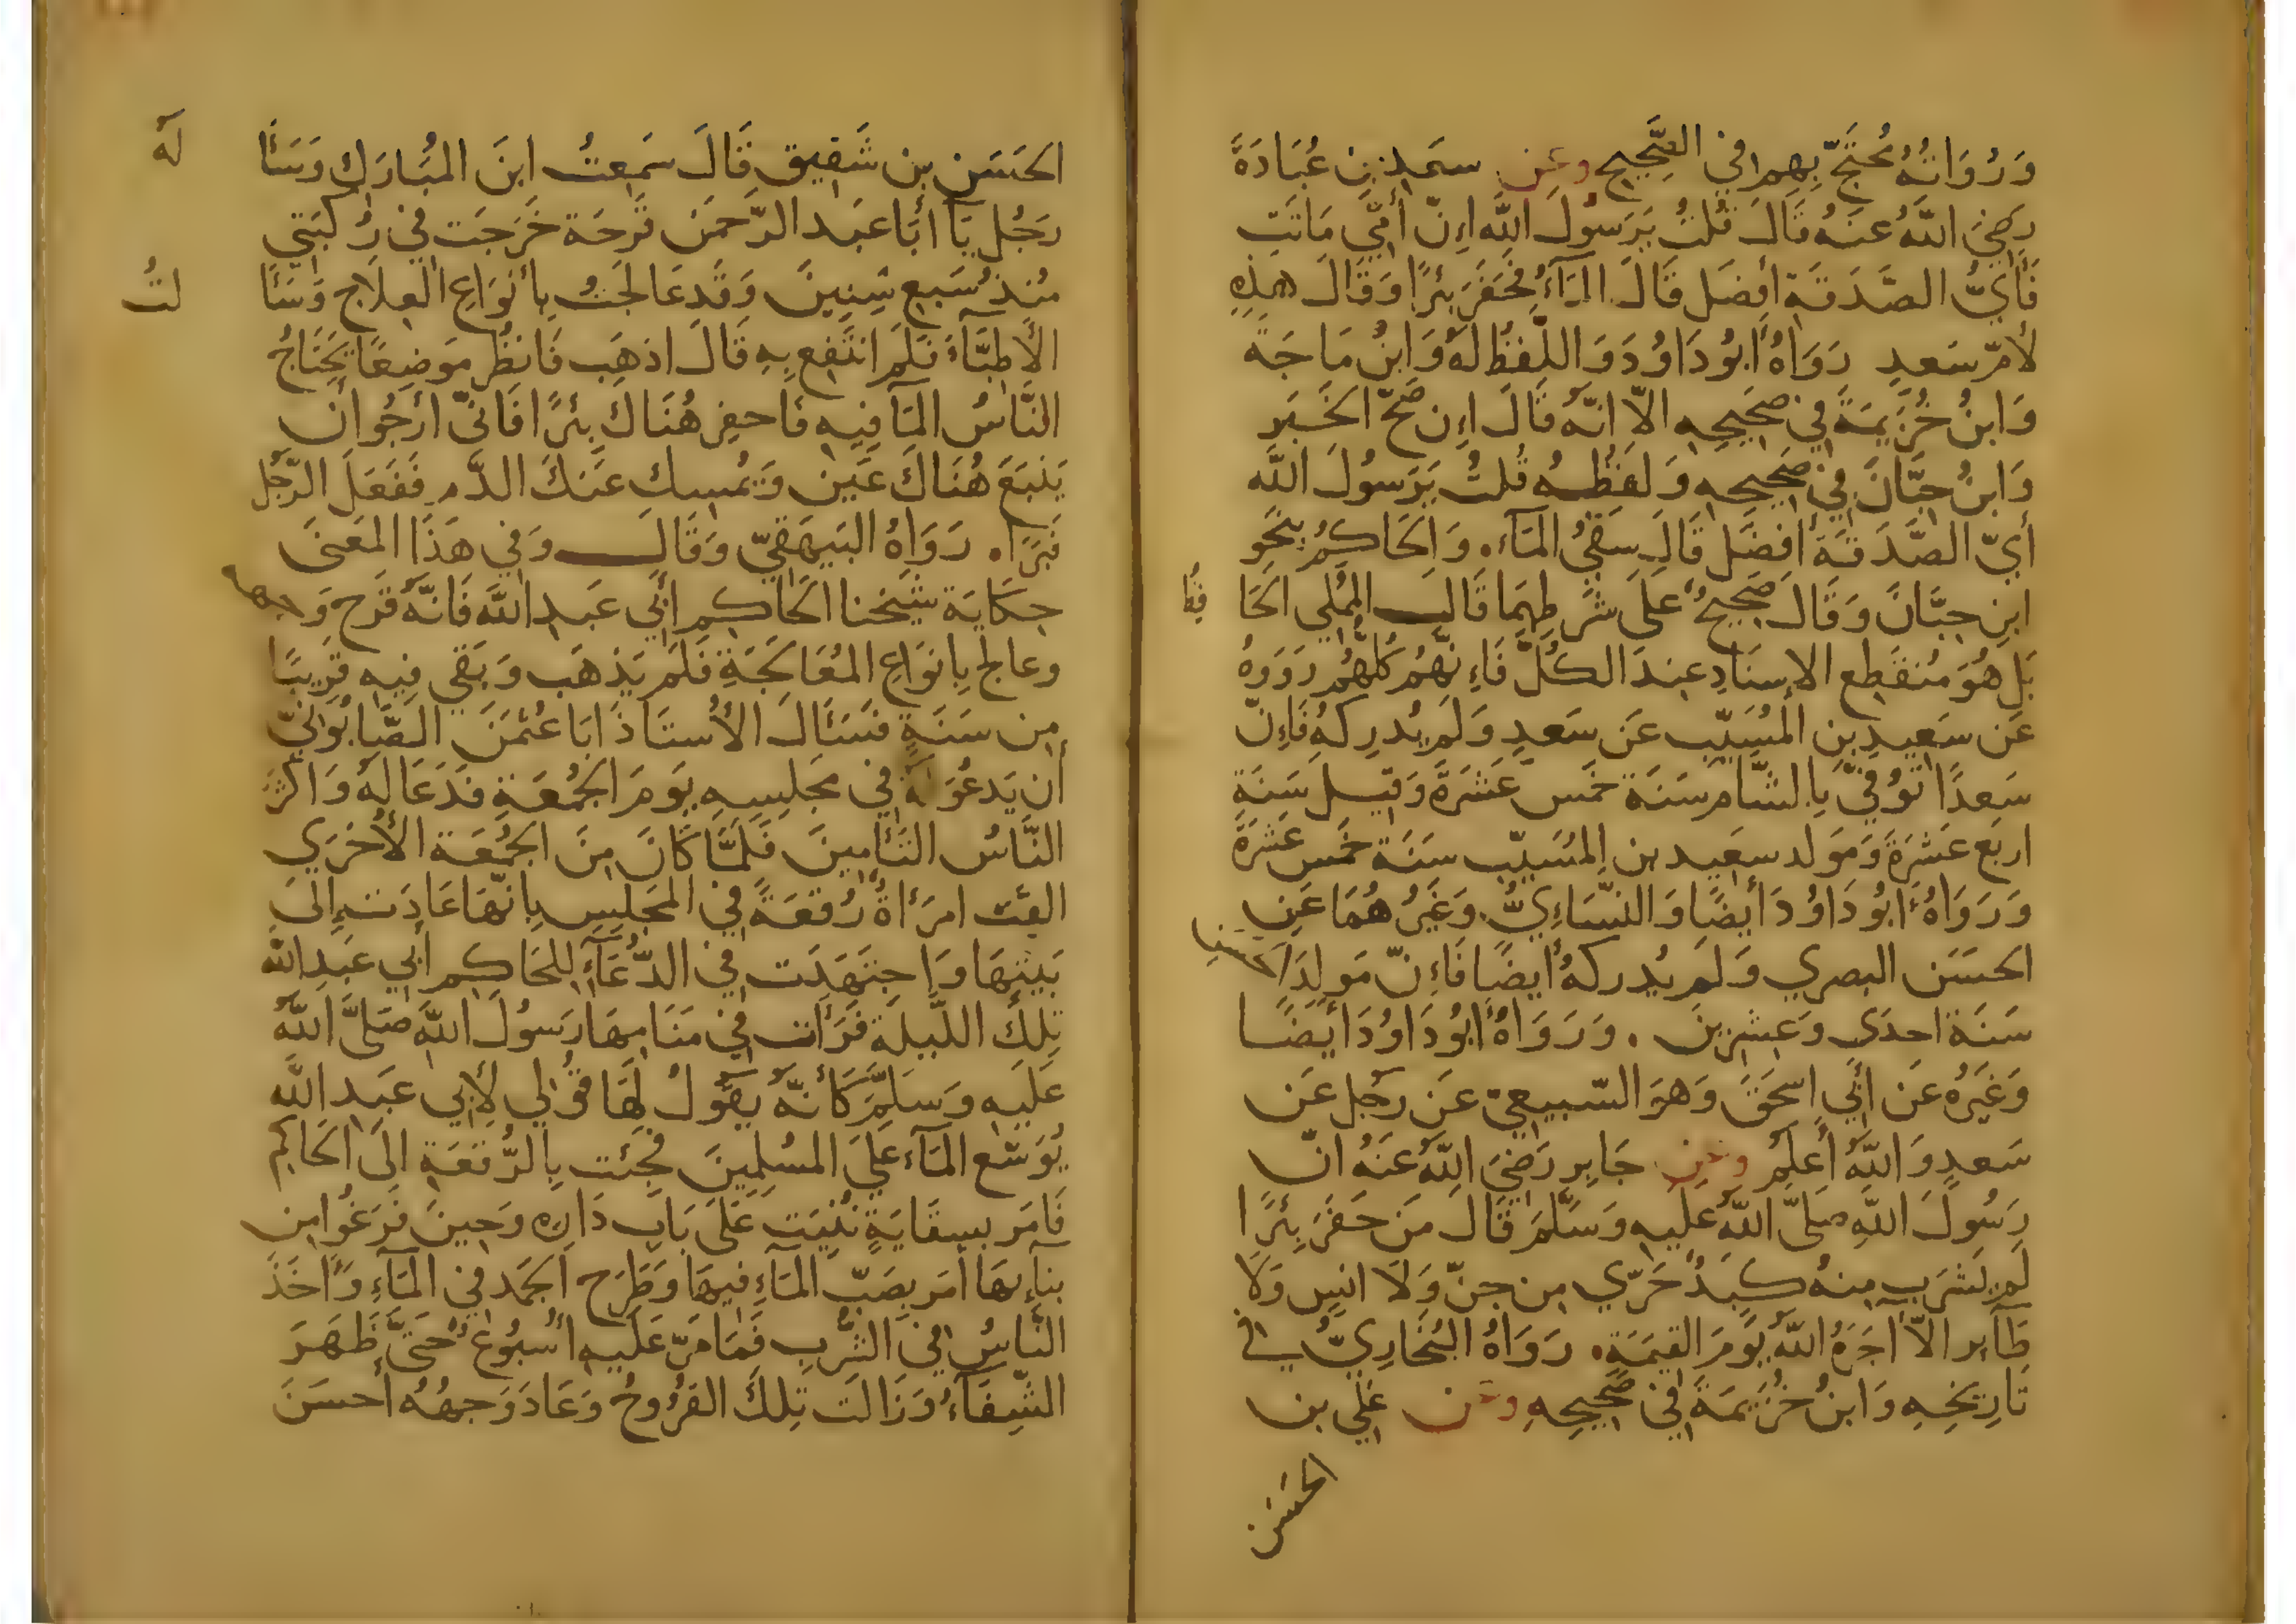 وَرُوَاتُهُ مُحْتَجّ بِهِم في الصَّحِيحِ وعن سَعدِ بنِ عُبَادَةَ
رَضِيَ اللَّهُ عَنهُ قَالَ قُلتُ يَرَسُولَ اللَّهِ اِنّ أُمّي مَاتَت
فَأَيُّ الصَّدَقَةِ افضَل قَالَ المَآءُ فحَفَرَ بِئرًا وَقَالَ هذِهِ
لأمّ سَعدٍ رَوَاهُ ابُو دَاوُدَ وَاللَّفظُ لَهُ وَابنُ مَاجَه
وَابنُ خُزَيمَةَ في صَحِيحِهِ الاّ انّهُ قَالَ اِن صَحّ الخَبَر
وَابنُ حِبَّانَ في صَحِيحِهِ وَلَفظُهُ قُلتُ يَرَسُولَ اللَّه
أيّ الصَّدَقَةِ افضَل قَالَ سَقيُ المَآءِ. وَالحَاكِمُ بنَحوِ
ابنِ حِبَّانَ وَقَالَ صَحِيحٌ عَلَى شَرطِهِمَا قَالَ المُملِي الحَا فِظُ
بَل هُوَ مُنقَطِع الاِسنَادِ عِندَ الكُلّ فَاِنّهُم كُلّهُم رَوَوهُ
عَن سَعِيدِ بنِ المُسَيّبِ عَن سَعدٍ وَلَم يُدرِكهُ فَاِنّ
سَعدًا تُوُفّيَ بِالشَّامِ سَنَة خَمس عَشَرَة وَقِيلَ سَنَة
اربَع عَشَرَة وَمَولد سعِيد بن المُسَيّب سَنَة خَمس عَشَرَة
وَرَوَاهُ ابُو دَاوُدَ أيضًا وَالنّسَاءِيُّ وَغَيرُهُمَا عَنِ
الحَسَن البصري وَلَم يُدركهُ أيضًا فَاِنّ مَولِدَ الحسن
سَنَة احدَى وَعِشرِينَ . وَرَوَاهُ ابُو دَاوُدَ أيضًا
وَغَيرُهُ عَن أبِي اسحَقَ وَهوَ السّبِيعيّ عَن رَجُل عَن
سَعدٍ وَاللَّهُ أعلَم وعن جَابِرٍ رَضِيَ اللَّهُ عَنهُ انّ
رَسُولَ اللَّهِ صلَّى اللَّهُ عَلَيهِ وَسَلَّمَ قَالَ مَن حَفَرَ بِئرًا
لَم يَشرَب مِنهُ كَبِدٌ حَرّي مِن جنّ وَلَا انسٍ وَلَا
طَآئِر الاّ آجَرَهُ اللَّهُ يَومَ القِيمَةِ. رَوَاهُ البُخَارِيُّ في
تَارِيخِهِ وَابنُ خُزَيمَةَ في صَحِيحِهِ وعن عَلي بن
الحسَن
الحَسَن بن شَقِيق قَالَ سَمِعتُ ابنَ المُبَارَك وَسَئَا لَهُ
رَجُل يَآ أبَا عَبد الرّحمَن قَرحَة خَرَجَت في رُكبَتي
مُنذُ سَبعِ سِنِينَ وَقَد عَالجَتُ بِأنوَاعِ العِلَاج وَسَئَا لتُ
الأطِبَّآءَ فَلَم انتَفِع بِهِ قَالَ اذهَب فَانظُر مَوضِعًا يَحتَاجُ
النَّاسُ المَآ فِيهِ فَاحفِر هُنَاكَ بِئرًا فَانّي ارجُو ان
يَنبَعَ هُنَاكَ عَين وَيُمسِك عَنكَ الدَّم فَفَعَلَ الرّجُل
فَبَرَا. رَوَاهُ البَيهَقيّ وَقَالَ وَفِي هَذَا المَعنَى
حِكَايَة شَيخنا الحَاكِم أبِي عَبدِ اللَّهِ فَانَّهُ قَرح وَجهه
وعالج بِانوَاعِ المُعَالَجَةِ فَلَم يَذهَب وَبَقي فِيهِ قَرِيبًا
مِن سَنَةٍ فسَئَالَ الأُستَاذَ ابَا عُثمَنَ الصَّابُوانيّ
أن يَدعُوَ لَهُ في مَجلِسِهِ يَومَ الجُمُعَةِ فَدَعَا لَهُ وَاكثَر
النَّاسُ التَئَامِينَ فَلَمَّا كَانَ مِنَ الجُمُعَة الأُخرَي
القَت امرَأَةٌ رُقعَةً في المَجلِسِ بِانّهَا عَادَت إِلَى
بَيتِهَا وَاجتَهَدَت في الدُّعَآءِ لِلحَاكِم ابي عَبدِ اللَّه
تِلكَ اللَّيلَة فَرَأت في مَنَامِهَا رَسُولَ اللَّهِ صَلَّى اللَّهُ
عَلَيهِ وَسَلَّمَ كَأنَّهُ يَقُولُ لَهَا قُولي لأبِي عَبدِ اللَّه
يُوَسّع المَآء عَلَي المُسلِمِينَ فَجِئت بِالرُّقعَةِ الَى الحَاكِم
فَامَر بسِقَايَةٍ بُنِيَت عَلَى بَابِ دَارِه وَحِينَ فَرَغُوا مِن
بنآئهَا أمَر بِصَبّ المَآءِ فيهَا وَطَرح الجمَد في المَآءِ وَاخَذَ
النَّاسُ في الشُّربِ فَمَا مَرّ عَلَيهِ أُسبُوعٌ حَتَّى ظَهَرَ
الشِّفَآءُ وَزَالَت تِلكَ القُرُوحُ وَعَادَ وَجهُهُ أحسَنَ